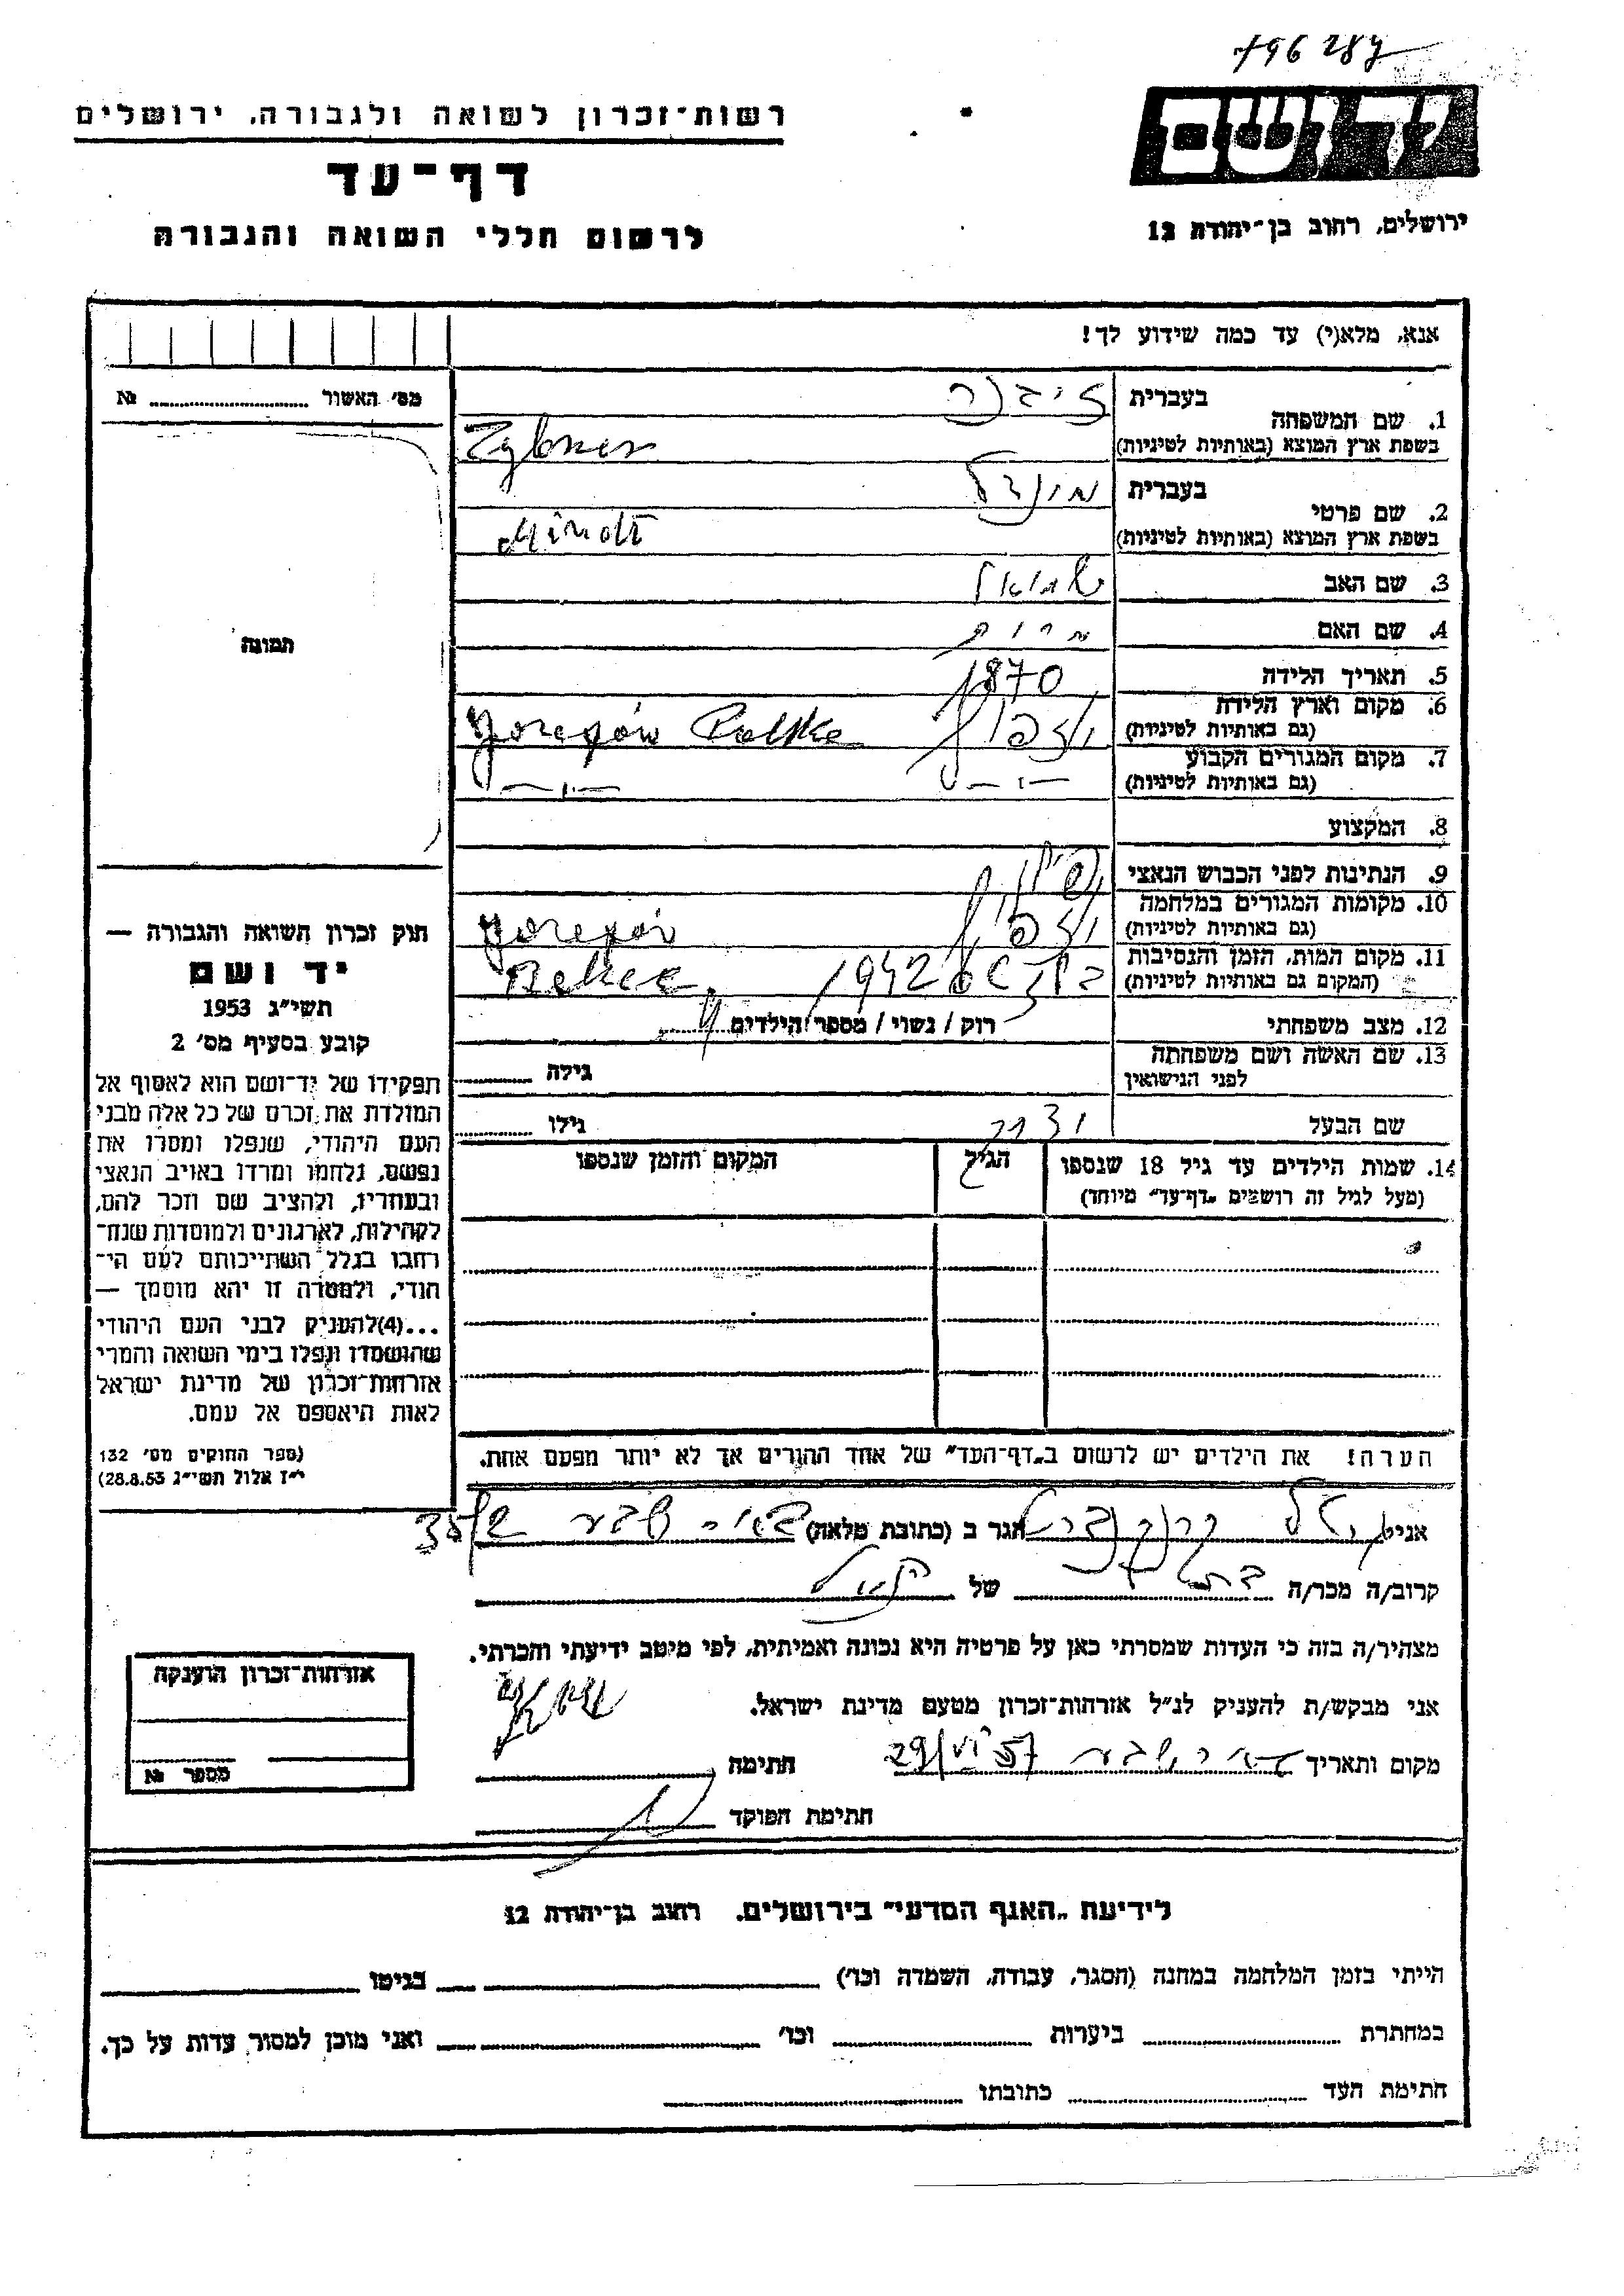 796287
רשות־זכרון לשואה ולגבורה, ירושלים
דף־עד
לרשום חללי השואה והגבורה
ירושלים, רחוב בן־יהודה 12
אנא, מלא(י) עד כמה שידוע לך!
1. שם המשפחה
בעברית זיבנר
בשפת ארץ המוצא (באותיות לטיניות) Zybner
2. שם פרטי
בעברית מינדל
בשפת ארץ המוצא (באותיות לטיניות)
3. שם האב שמואל
4. שם האם
5. תאריך הלידה 1870
6. מקום וארץ הלידה
(גם באותיות לטיניות) Polska
7. מקום המגורים הקבוע
(גם באותיות לטיניות) —"— —"—
8. המקצוע
9. הנתינות לפני הכבוש הנאצי
10. מקומות המגורים במלחמה
(גם באותיות לטיניות)
11. מקום המות, הזמן והנסיבות
(המקום גם באותיות לטיניות) בלזץ 1942
12. מצב משפחתי רוק / נשוי / מספר הילדים
13. שם האשה ושם משפחתה
לפני הנישואין גילה
שם הבעל גילו
14. שמות הילדים עד גיל 18 שנספו
(מעל לגיל זה רושמים „דף־עד" מיוחד)
הגיל
המקום והזמן שנספו
הערה! את הילדים יש לרשום ב„דף־העד" של אחד ההורים אך לא יותר מפעם אחת.
מס׳ האשור №
תמונה
חוק זכרון השואה והגבורה —
יד ושם
תשי״ג 1953
קובע בסעיף מס׳ 2
תפקידו של יד־ושם הוא לאסוף אל
המולדת את זכרם של כל אלה מבני
העם היהודי, שנפלו ומסרו את
נפשם, נלחמו ומרדו באויב הנאצי
ובעוזריו, ולהציב שם וזכר להם,
לקהילות, לארגונים ולמוסדות שנח־
רחבו בגלל השתייכותם לעם הי־
הודי, ולמטרה זו יהא מוסמך —
...(4)להעניק לבני העם היהודי
שהושמדו ונפלו בימי השואה והמרי
אזרחות־זכרון של מדינת ישראל
לאות היאספם אל עמם.
(ספר החוקים מס׳ 132
י״ז אלול תשי״ג 28.8.53)
אני הגר ב (כתובת מלאה) באר שבע
קרוב/ה מכר/ה של
מצהיר/ה בזה כי העדות שמסרתי כאן על פרטיה היא נכונה ואמיתית, לפי מיטב ידיעתי והכרתי.
אני מבקש/ת להעניק לנ״ל אזרחות־זכרון מטעם מדינת ישראל.
מקום ותאריך באר שבע 29/VI 57 חתימה
חתימת הפוקד
אזרחות־זכרון הוענקה
מספר №
לידיעת „האגף המדעי" בירושלים, רחוב בן־יהודה 12
הייתי בזמן המלחמה במחנה (הסגר, עבודה, השמדה וכו׳) בגיטו
במחתרת ביערות וכו׳ ואני מוכן למסור עדות על כך.
חתימת העד כתובתו